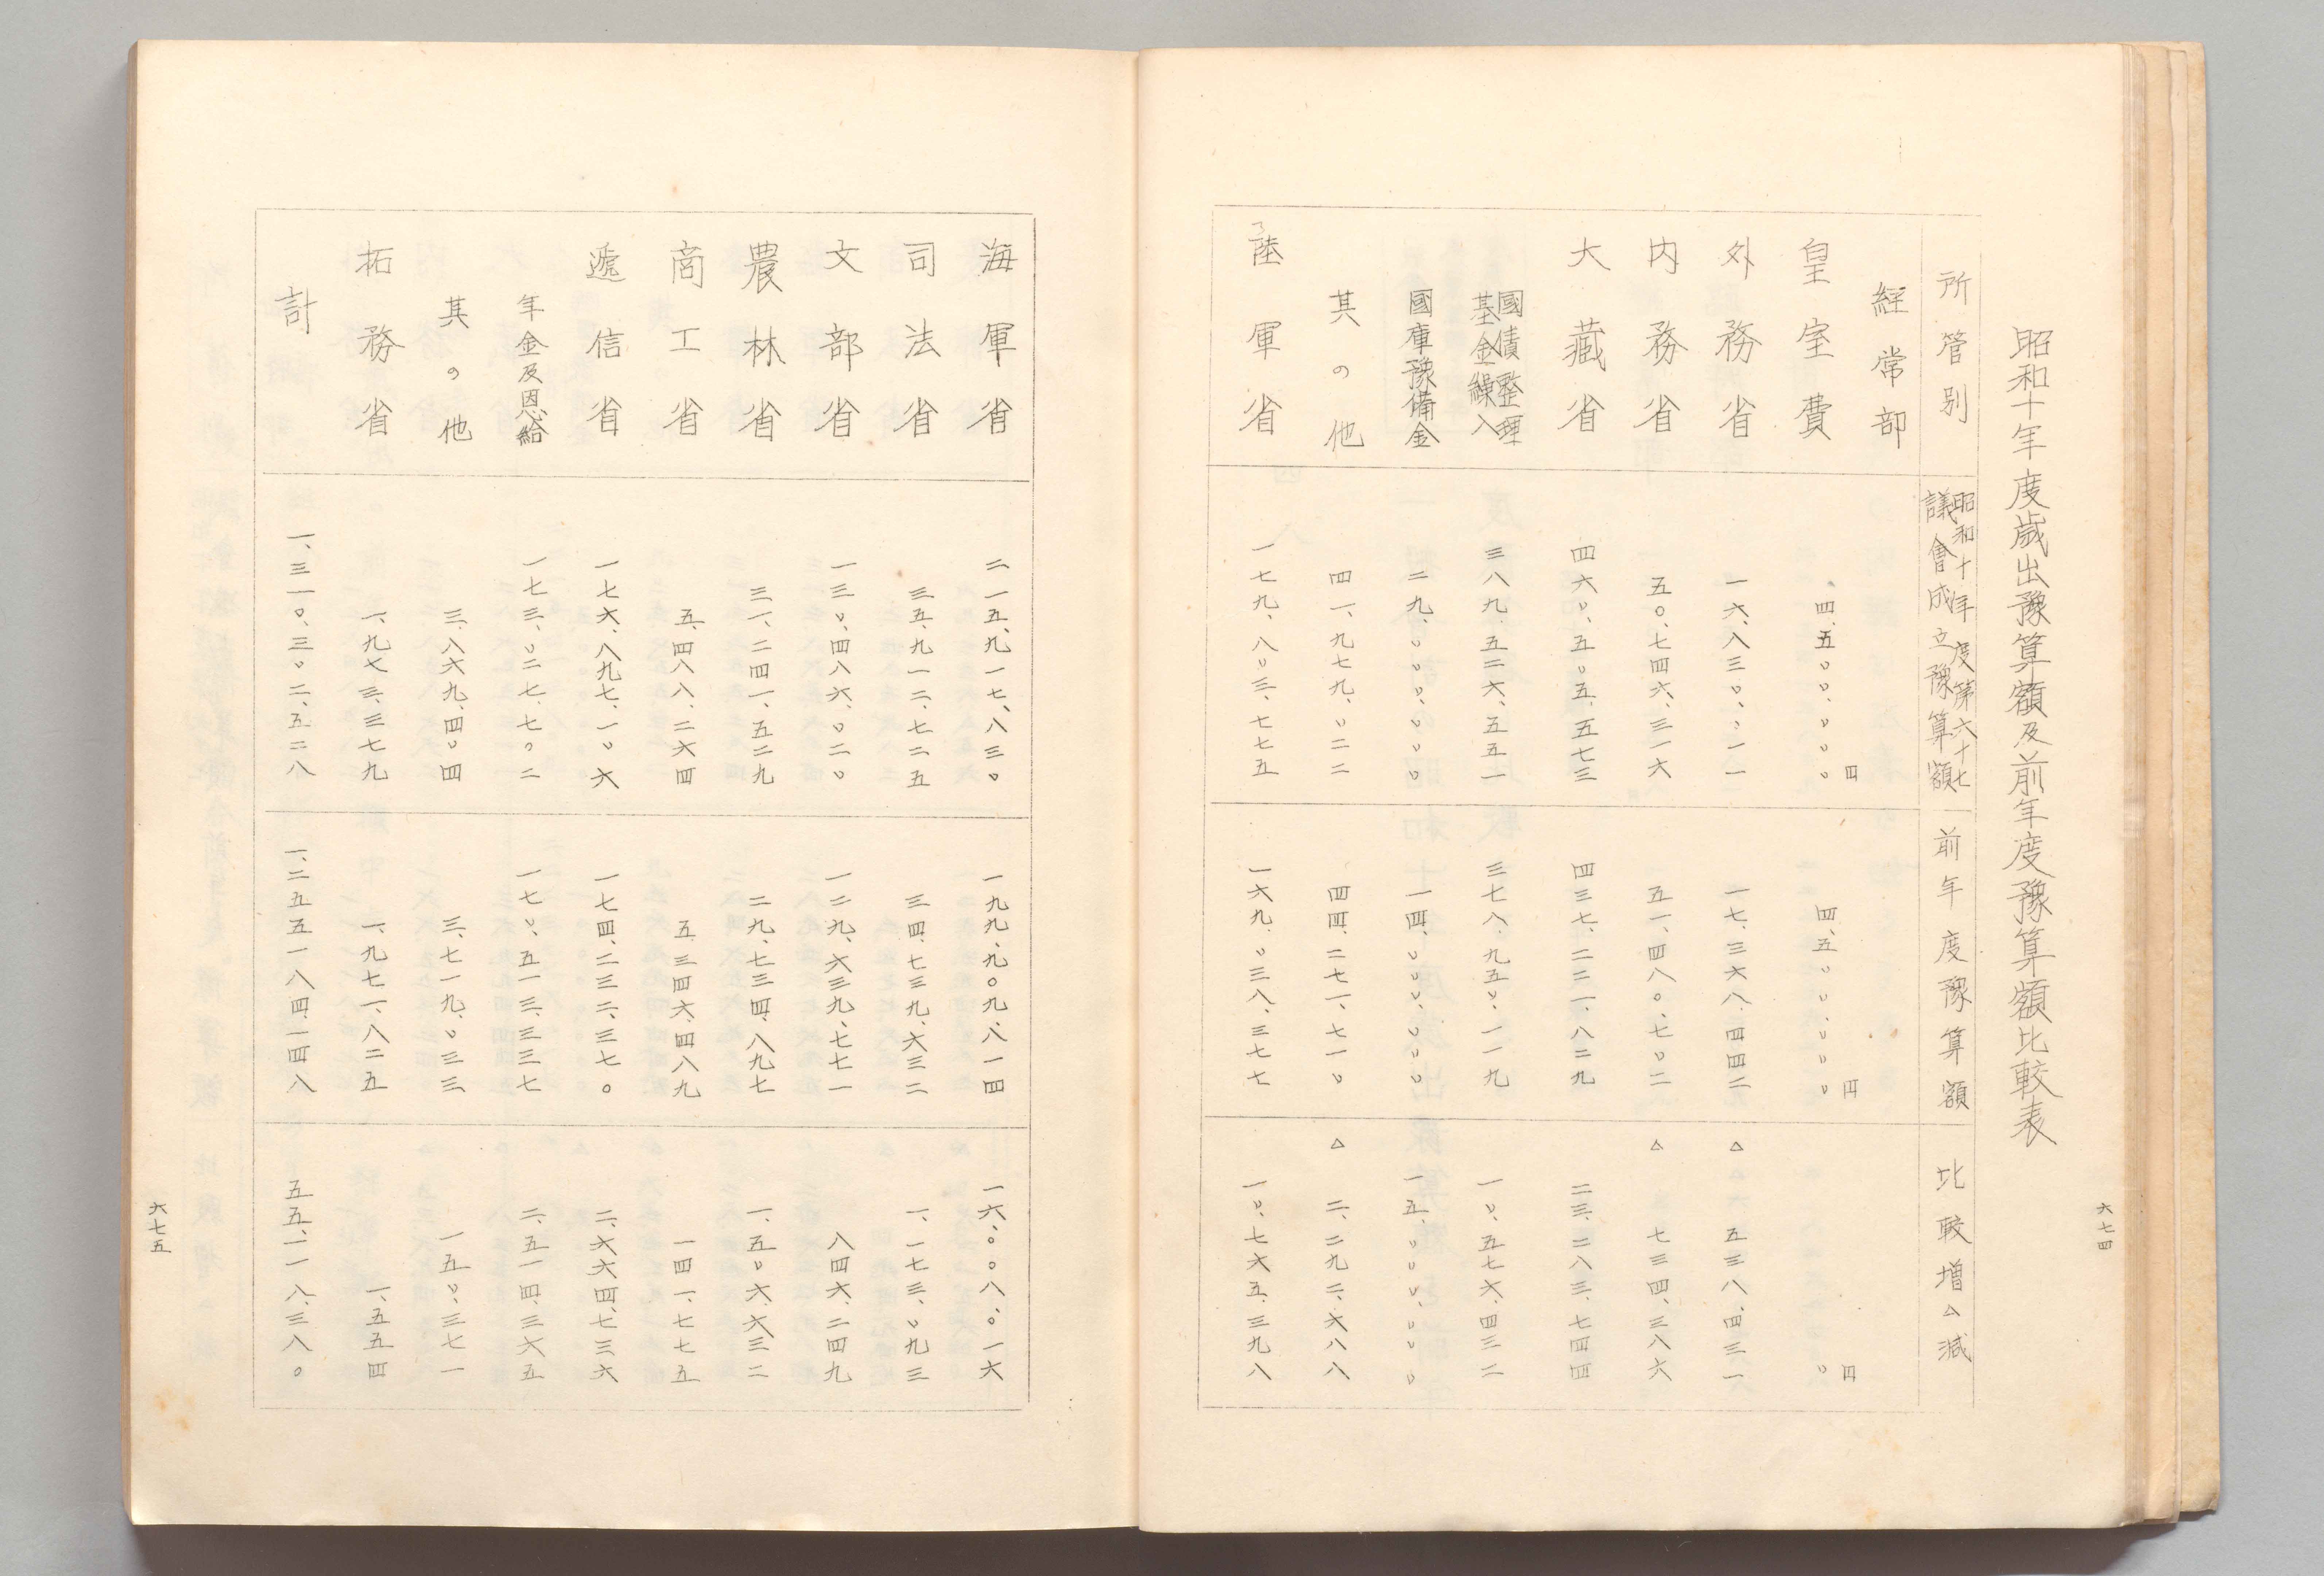 六七四
昭和十年度歳出豫算額及前年度豫算額比較表
所管別 昭和十年度第六十七議會成立豫算額 前年度豫算額 比較増△減
經常部
円 円 円
皇室費 四、五〇〇、〇〇〇 四、五〇〇、〇〇〇 〇
外務省 一六、八三〇、〇一一 一七、三六八、四四二 △ 五三八、四三一
内務省 五〇、七四六、三一六 五一、四八〇、七〇二 △ 七三四、三八六
大藏省 四六〇、五〇五、五七三 四三七、二二一、八二九 二三、二八三、七四四
國債整理基金繰入 三八九、五二六、五五一 三七八、九五〇、一一九 一〇、五七六、四三二
國庫豫備金 二九、〇〇〇、〇〇〇 一四、〇〇〇、〇〇〇 一五、〇〇〇、〇〇〇
其の他 四一、九七九、〇二二 四四、二七一、七一〇 △ 二、二九二、六八八
陸軍省 一七九、八〇三、七七五 一六九、〇三八、三七七 一〇、七六五、三九八
海軍省 二一五、九一七、八三〇 一九九、九〇九、八一四 一六、〇〇八、〇一六
司法省 三五、九一二、七二五 三四、七三九、六三二 一、一七三、〇九三
文部省 一三〇、四八六、〇二〇 一二九、六三九、七七一 八四六、二四九
農林省 三一、二四一、五二九 二九、七三四、八九七 一、五〇六、六三二
商工省 五、四八八、二六四 五、三四六、四八九 一四一、七七五
遞信省 一七六、八九七、一〇六 一七四、二三二、三七〇 二、六六四、七三六
年金及恩給 一七三、〇二七、七〇二 一七〇、五一三、三三七 二、五一四、三六五
其の他 三、八六九、四〇四 三、七一九、〇三三 一五〇、三七一
拓務省 一、九七三、三七九 一、九七一、八二五 一、五五四
計 一、三一〇、三〇二、五二八 一、二五五、一八四、一四八 五五、一一八、三八〇
六七五